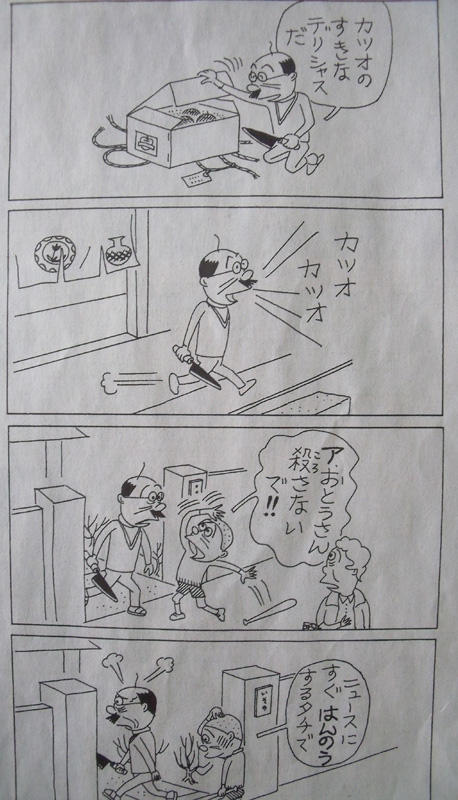 カツオの
すきな
デリシャス
だ
カツオ
カツオ
ア、おとうさん
殺さない
ころ
デ!!
ニュースに
すぐはんのう
するタチで
いその